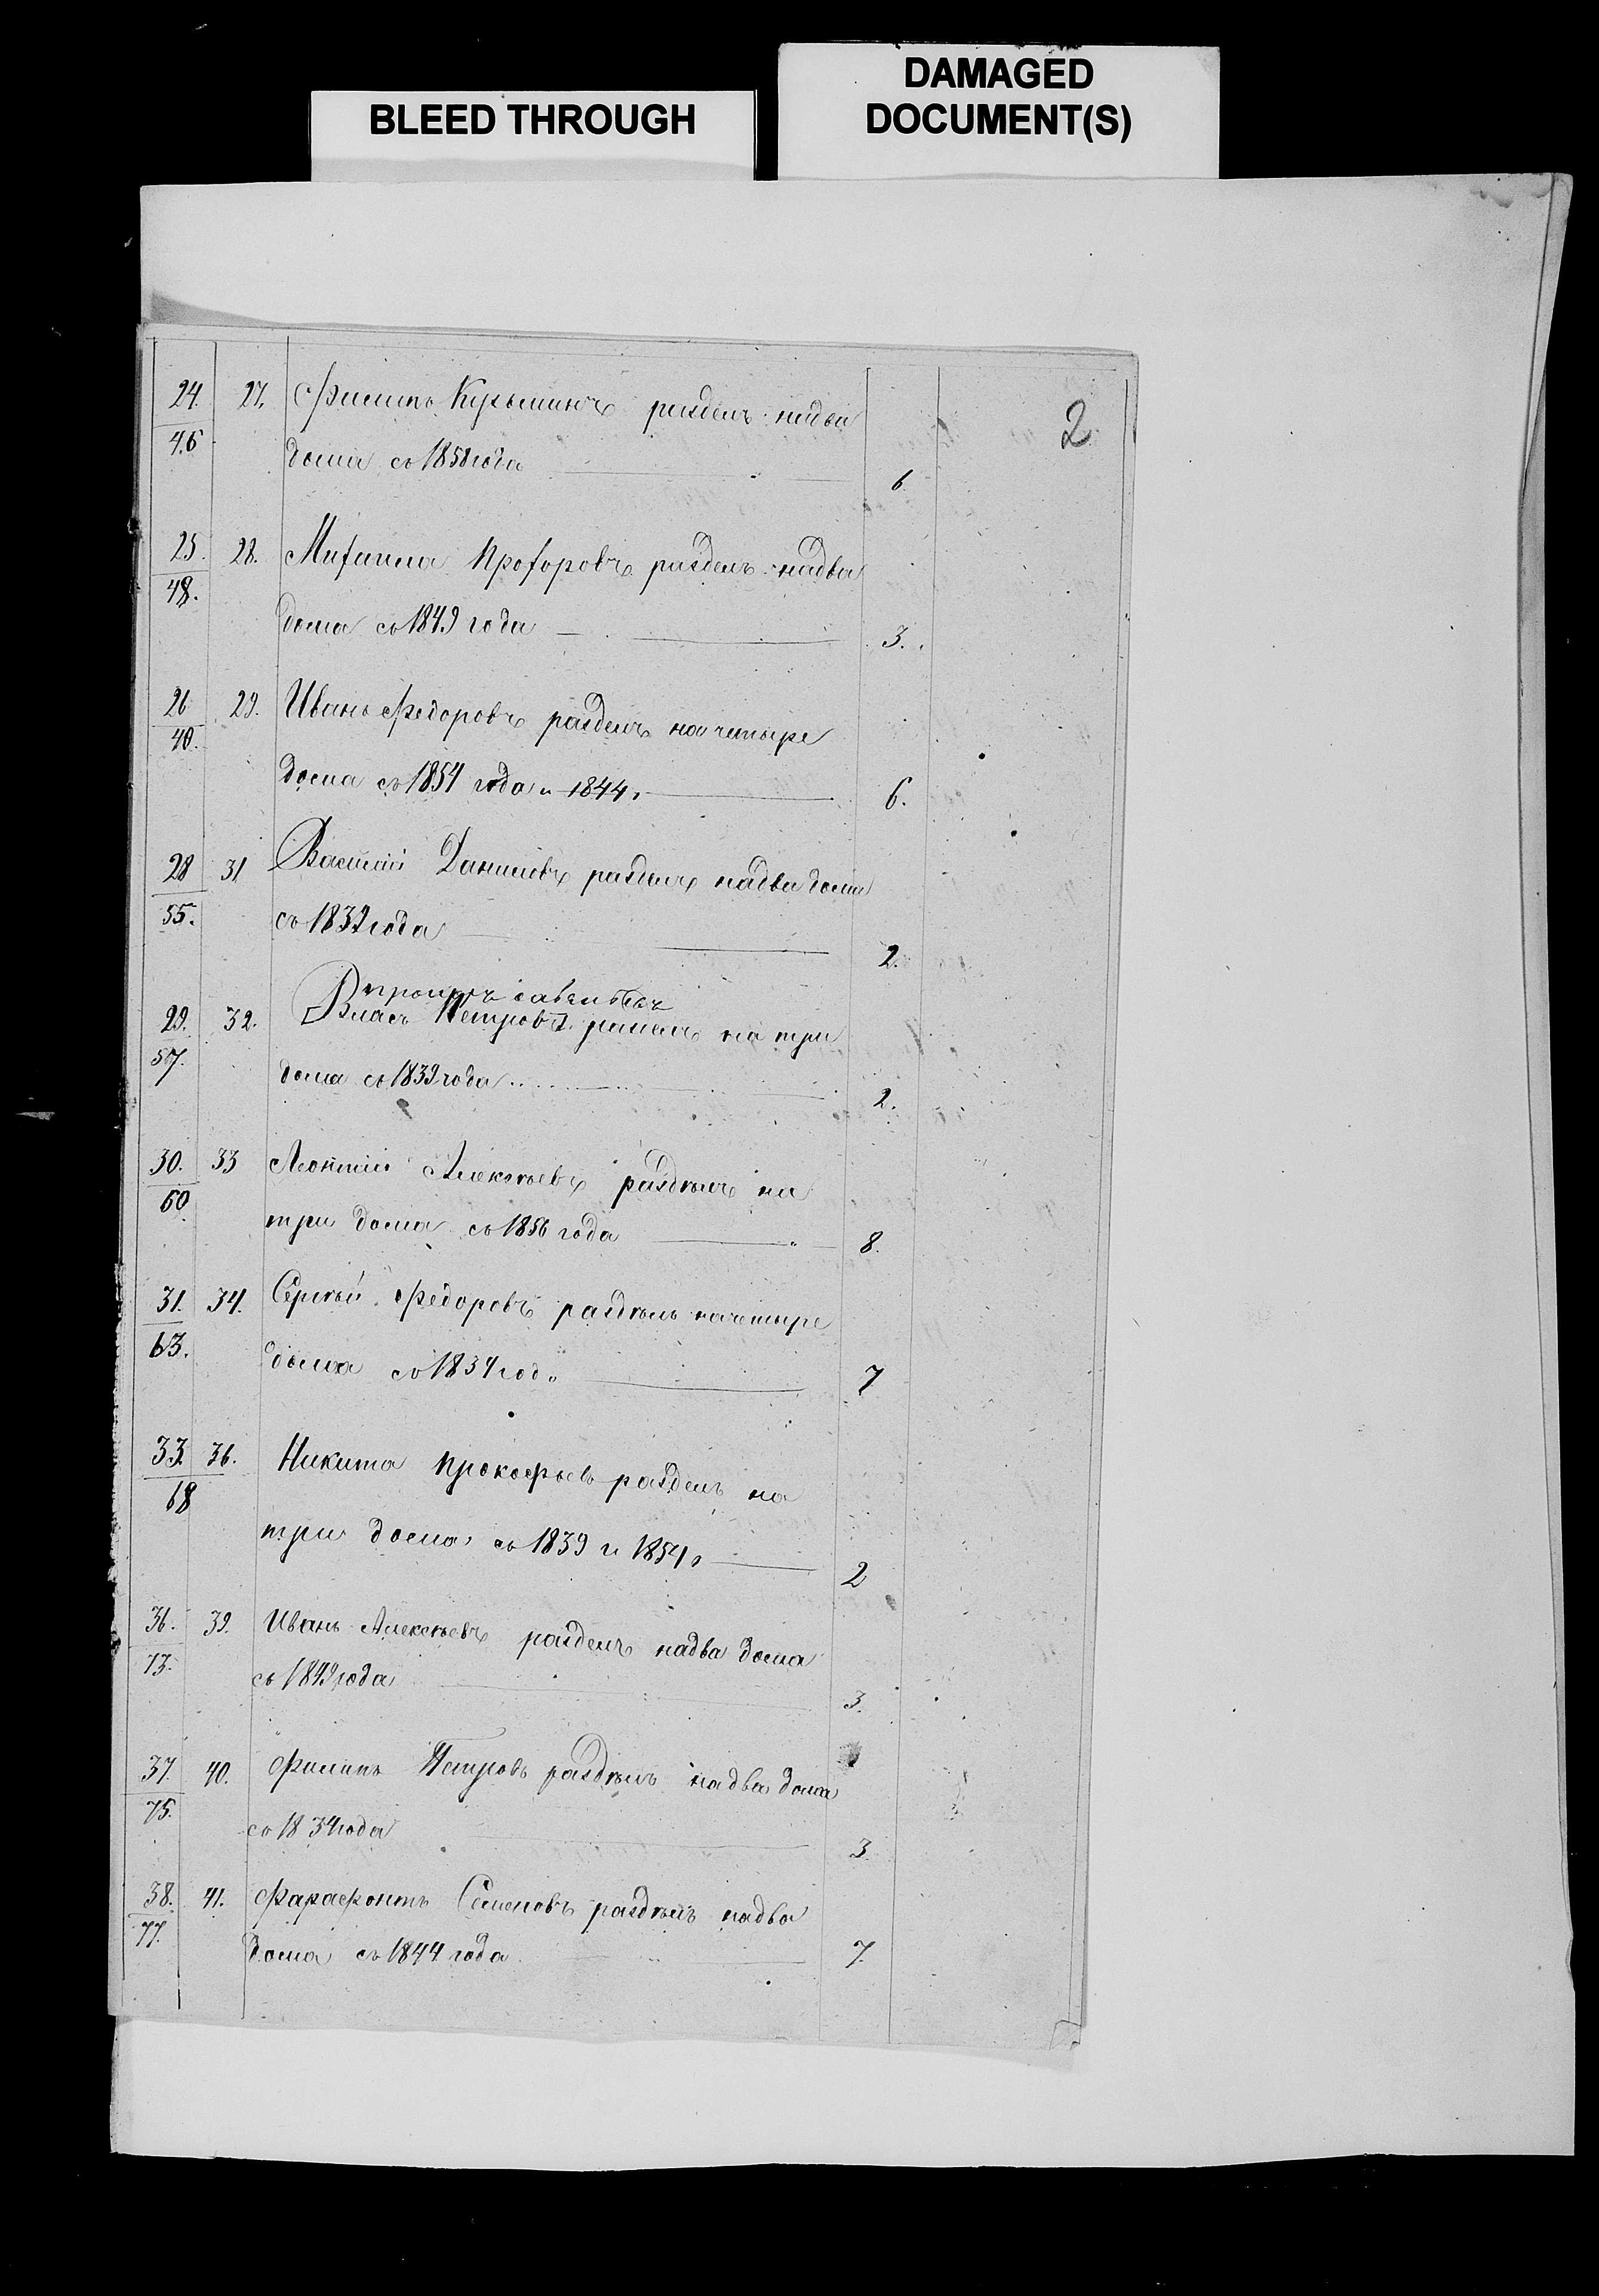 BLEED THROUGH
DAMAGED
DOCUMENT(S)
2
24. 27. Филипъ Кузьминъ раздел. надва
46 дома со 1858 года 6
25. 28. Михаила Прохоровъ раздель надва
48. дома со 1849 года 3.
26 29. Иванъ Федоровъ раздель на четыре
40. дома съ 1854 года и 1844, 6.
28 31 Василiй Даниловъ раздель надва дома
55. съ 1839 года 2.
29. 32. Власъ Петровъ на три
57. дома со 1839 года 2.
30. 33 Леонтiй Алексѣевъ раздѣлъ на
60 три дома со 1856 года 8.
31. 34. Сергѣй Федоровъ раздѣлъ начетыре
63. дома со 1834 год. 7
33. 36. Никита Прокофьев раздель на
68 три дома со 1839 и 1854, 2
36. 39. Иванъ Алексѣевъ раздель надва дома
73. съ 1849 года 3.
37. 40. Филипъ Петровъ раздѣлъ надва дома
75. со 1834 года 3
38. 41. Фарафонтъ Семеновъ раздѣлъ надва
77. дома съ 1844 года 7.